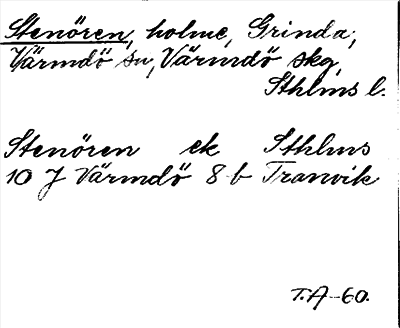 Stenören, holme, Grinda,
Värmdö sn, Värmdö skg,
Sthlms l.
Stenören ek Sthlms
10 J Värmdö 8 b Tranvik
T.A-60.